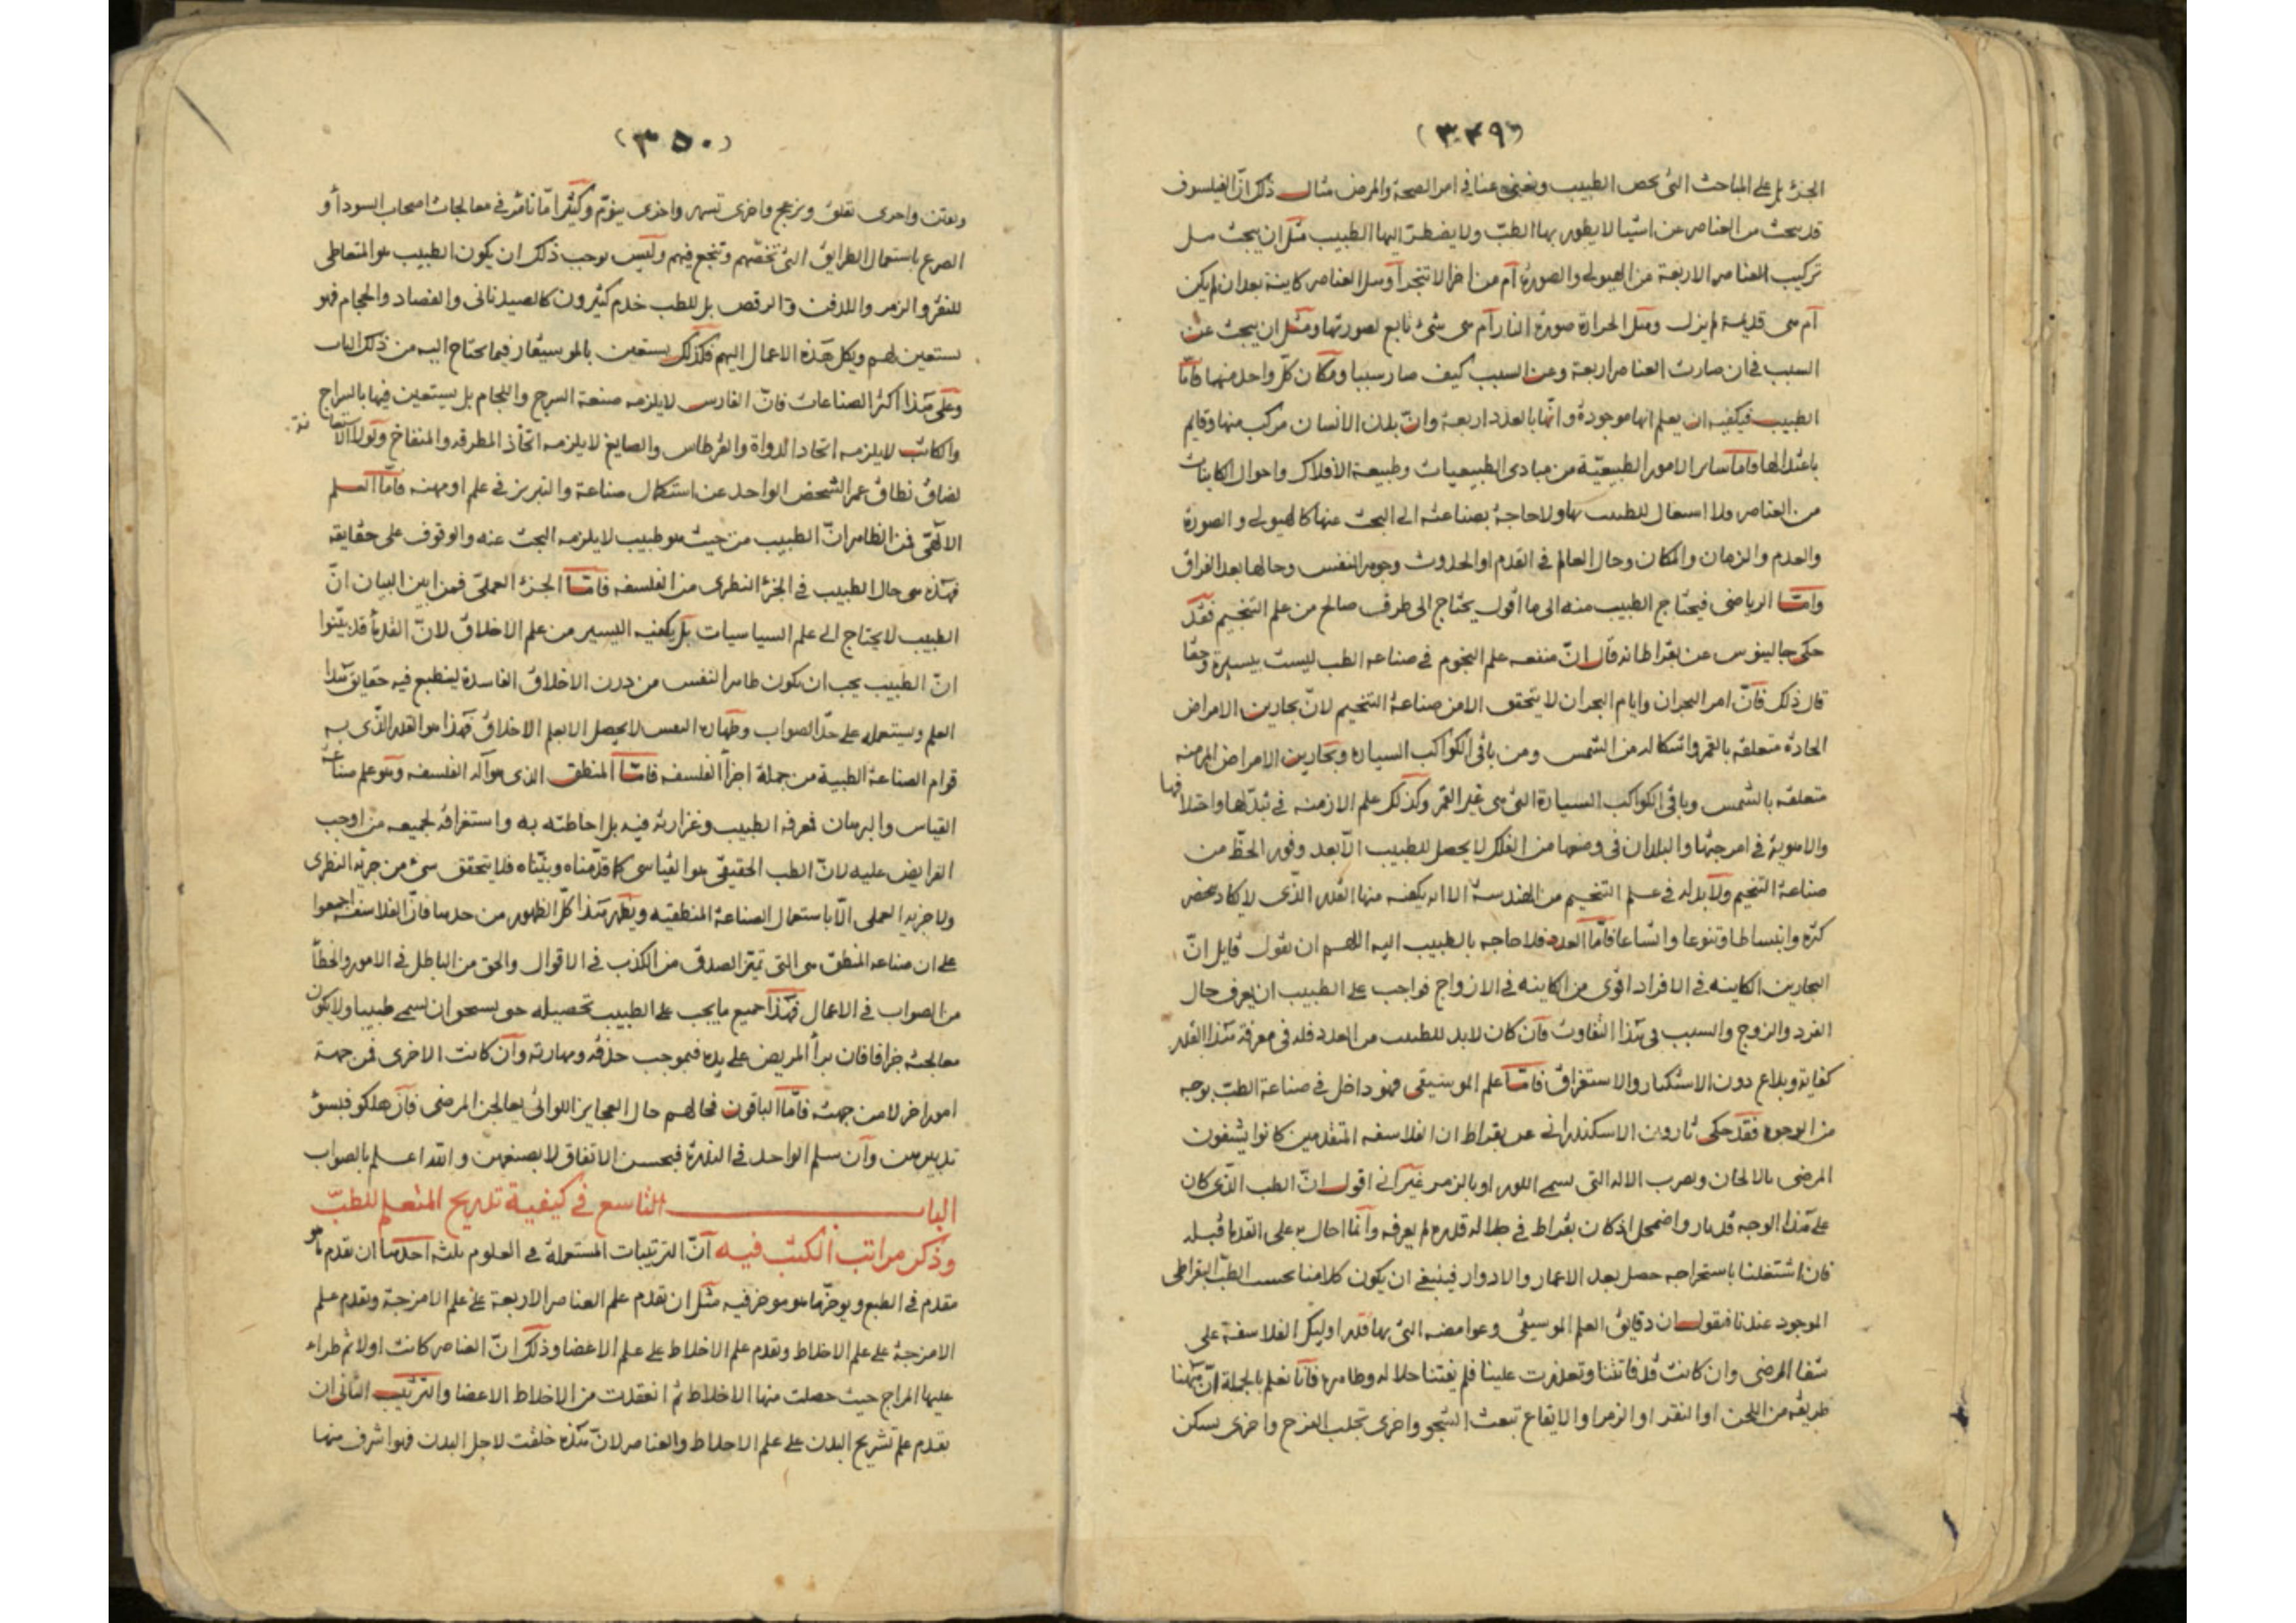 (٣٤٩)
الجزء بل على المباحث التى تخص الطبيب ويعتنى عنا فى امر الصحة والمرض مثال ذلك انّ الفيلسوف
قد يبحث من العناصر عن اشيا لا يطور بها الطبّ ولا يضطرّ اليها الطبيب مثل ان يبحث هل
تركيب العناصر الاربعة من الهيولى والصورة أم من اجزا لا تتجزأ وهل العناصر كاينة بعد ان لم يكن
أم هى قديمة لم يزل ومثل الحرارة صورة النار أم هى شئ تابع لصورتها ومثل ان يبحث عن
السبب فى ان صارت العناصر اربعة وعن السبب كيف صار سببا ومكان كلّ واحد منها فامّا
الطبيب فيكفيه ان يعلم انها موجودة وانّها بالعدد اربعة وانّ بدن الانسان مركب منها وقايم
باعتدالها وامّا ساير الامور الطبيعيّة من مبادى الطبيعيات وطبيعة الأفلاك واحوال الكاينات
من العناصر ولا اسعال للطبيب بها ولا حاجة بصناعته الى البحث عنها كالهيولى والصورة
والعدم والزمان والمكان وحال العالم فى القدم او الحدوث وجوهر النفس وحالها بعد الفراق
وامّا الرياضى فيحتاج الطبيب منه الى ما أقول يحتاج الى طرف صالح من علم التنجيم فقد
حكى جالينوس عن بقراط انه قال انّ منفعه علم النجوم فى صناعه الطب ليست بيسيرة وحقّا
قال ذلك فانّ امر البحران وايام البحران لا يتحقق الا من صناعة التنجيم لانّ بحارين الامراض
الحادة متعلقه بالقمر واشكاله من الشمس ومن باقى الكواكب السيارة وبحارين الامراض المزمنه
متعلقه بالشمس وباقى الكواكب السيارة التى هى غير القمر وكذلك علم الازمنه فى تبدّلها واختلافها
والاهوية فى امزجتها والبلدان فى وضعها من الفلك لا يحصل للطبيب الّا بعد وفور الحظّ من
صناعة التنجيم ولا بد له فى علم التنجيم من الهندسة الا انه يكفيه منها القدر الذّى لا يكاد يحضر
كثره وانبساطا وتنوعا واتساعا فامّا العدد فلا حاجه بالطبيب اليه اللهم ان يقول قايل انّ
البحارين الكاينه فى الافراد اقوى من الكاينه فى الازواج فواجب على الطبيب ان يعرف حال
الفرد والزوج والسبب فى هذا التفاوت فان كان لابد للطبيب من العدد فله فى معرفة هذا القدر
كفاية وبلاغ دون الاستكثار والاستغراق فامّا علم الموسيقى فهو داخل فى صناعة الطبّ بوجه
من الوجوه فقد حكى ثاون الاسكندرانى عن بقراط ان الفلاسفه المتقدمين كانوا يشفون
المرضى بالالحان وبضرب الاله التى تسمى اللور او بالزمر غير أنى اقول انّ الطب الذّى كان
على هذا الوجه قد باد واضمحل اذ كان بقراط فى جلاله قدره لم يعرفه وانما احال به على القدما قبله
فان اشتغلنا باستخراجه حصل بعد الاعمار والادوار فينبغى ان يكون كلامنا بحسب الطبّ البقراطى
الموجود عندنا فنقول ان دقايق العلم الموسيقى وغوامضه التى بها قدر اوليك الفلاسفة على
شفا المرضى وان كانت قد فاتتنا وتعذرت علينا فلم يفتنا جلاله وظاهره فانّا نعلم بالجملة انّ ههنا
طريقه من اللحن او النقر او الزمر او الايقاع تبعث الشجو واخرى تجلب الفرح واخرى يسكن
(٣٥٠)
واخرى تقلق وتزعج واخرى تسهر واخرى ينوّم وكثيرا مّا نامر فى معالجات اصحاب السودا أو
الصرع باستعمال الطرايق التى تخصّهم وتنجع فيهم وليس يوجب ذلك ان يكون الطبيب هو المتعاطى
للنقر والزمر والدفن والرقص بل للطب خدم كثيرون كالصيدنانى والفصاد والحجام فهو
يستعين بهم ويكل هذه الاعمال اليهم فكذلك يستعين بالموسيقار فيما يحتاج اليه من ذلك الباب
وعلى هذا أكثر الصناعات فانّ الفارس لا يلزمه صنعة السرج واللجام بل يستعين فيها بالسراج
والكاتب لا يلزمه اتخاذ الدواة والقرطاس والصايغ لا يلزمه اتّخاذ المطرقه والمنفاخ ولولا الاستعانة
لضاق نطاق عمر الشخص الواحد عن استكمال صناعة والتبريز فى علم او مهنه فامّا العلم
الالهّى فمن الظاهر انّ الطبيب من حيث هو طبيب لا يلزمه البحث عنه والوقوف على حقايقه
فهذه هى حال الطبيب فى الجزء النظرى من الفلسفه فامّا الجزء العملّى فمن ابين البيان انّ
الطبيب لا يحتاج الى علم السياسيات بل يكفيه اليسير من علم الاخلاق لانّ القدما قد بيّنوا
انّ الطبيب يجب ان يكون طاهر النفس من درن الاخلاق الفاسدة لينطبع فيه حقايق هذا
العلم ويستعمله على حدّ الصواب وطهارة النفس لا يحصل الا بعلم الاخلاق فهذا هو القدر الذّى به
قوام الصناعة الطبية من جملة اجزأ الفلسفه فامّا المنطق الذى هو آله الفلسفه وهو علم صناعة
القياس والبرهان فمعرفه الطبيب وغزارته فيه بل احاطته به واستغراقه لجميعه من اوجب
الفرايض عليه لانّ الطب الحقيقىّ هو القياسى كما قدّمناه وبيّناه فلا يتحقق شئ من جزئه النظرى
ولا جزيه العملى الّا باستعمال الصناعة المنطقيه ويظهر هذا كلّ الظهور من حدها فانّ الفلاسفه اجمعوا
على ان صناعه المنطق هى التى تميّز الصدق من الكذب فى الاقوال والحق من الباطل فى الامور والخطأ
من الصواب فى الاعمال فهذا جميع ما يجب على الطبيب تحصيله حتى يستحق ان يسمى طبيبا ولا يكون
معالجته جزافا فان برأ المريض على يده فبموجب حذقه ومهارته وان كانت الاخرى فمن جهة
امور أخر لا من جهته فامّا الباقون فحالهم حال العجايز اللواتى يعالجن المرضى فان هلكو فبسوّ
تدبيرهن وان سلم الواحد فى الندرة فبحسن الاتفاق لا بصنعهن والله اعلم بالصواب
الباب التاسع فى كيفية تدريج المتعلم للطبّ
وذكر مراتب الكتب فيه انّ الترتيبات المستعملة فى العلوم ثلثه احدها ان تقدم ما هو
مقدم فى الطبع ويوخرّ ما هو موخر فيه مثل ان تقدم علم العناصر الاربعة على علم الامزجة وتقدم علم
الامزجة على علم الاخلاط وتقدم علم الاخلاط على علم الاعضا وذلك انّ العناصر كانت اولا ثم طراء
عليها المزاج حيث حصلت منها الاخلاط ثم انعقدت من الاخلاط الاعضا والترتيب الثانى ان
يقدم علم تشريح البدن على علم الاخلاط والعناصر لانّ هذه خلقت لاجل البدن فهو اشرف منها